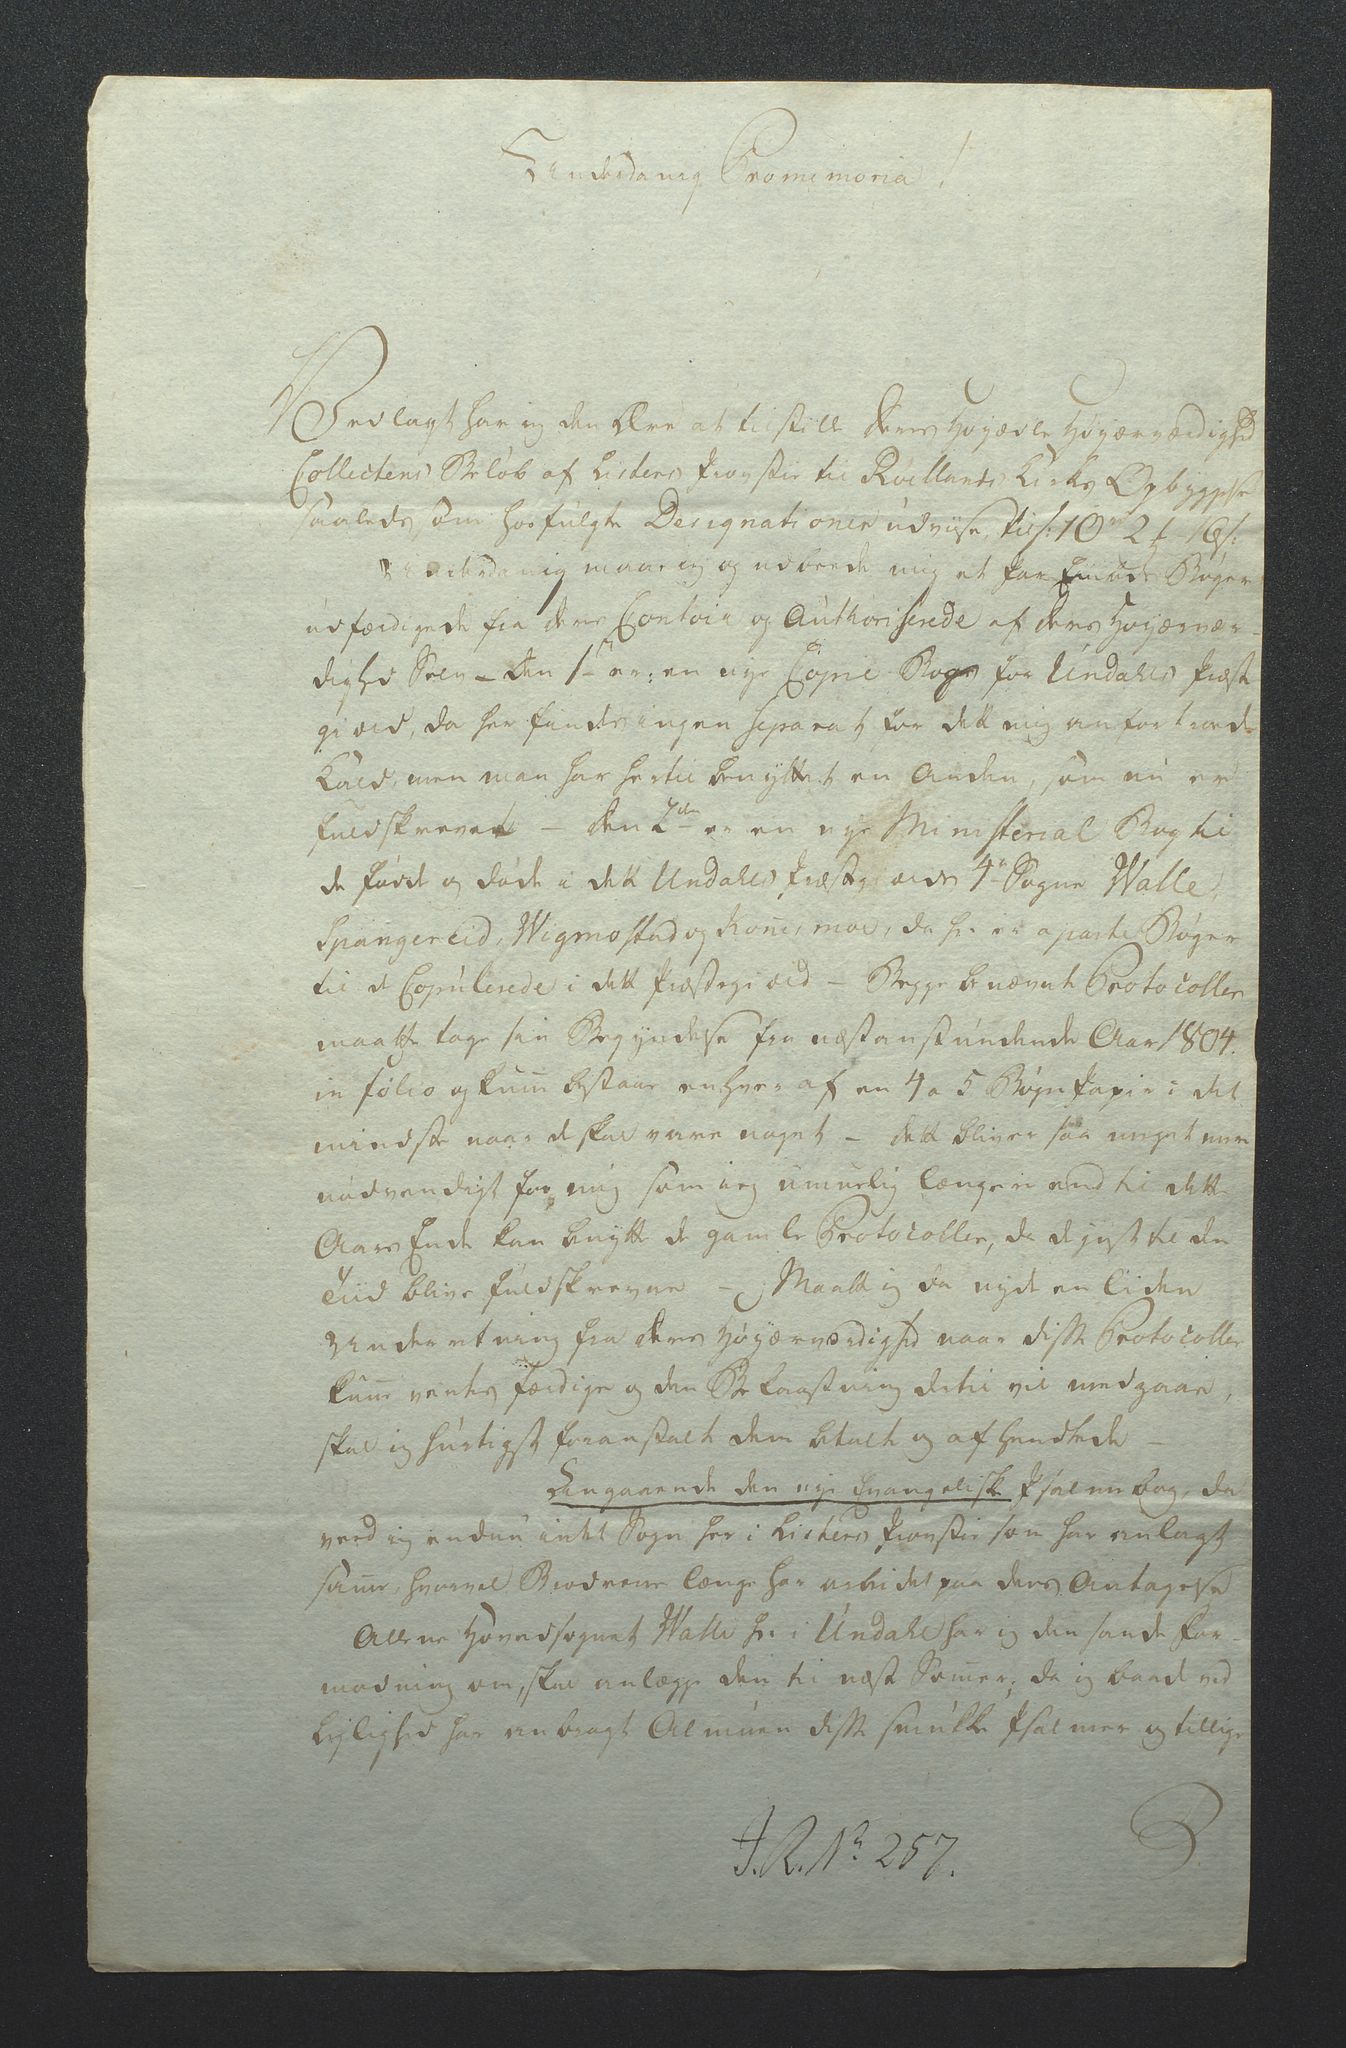 Underdanig Promemoria!
Vedlagt har jeg den Ære at tilstille Deres Høyædle Høyærværdighed
Collectens Beløb af Listers Provstie til Røllants Kirkes Opbyggelse
saaledes som hosfulgte Designationer udviise, tils: 10 rd 2 16 s:
Underdanig maae jeg og udbeede mig et par Bøger
udfærdigede fra deres Contoir og Authoriserede af deres Høyærvær-
dighed Selv – Den 1te er: en nye Copie Bog for Undahls Præste
gield, da her findes ingen separat for dette mig anfortroede
Kald, men man har hertil benyttet en Anden, som nu er
fuldskreven – Den 2den er en nye Ministerial Bog til
de fødde og døde i dette Undahls Præstegields 4re Sogne Walle,
Spangereid, Wigmostad og Konismoe, da her er aparte Bøger
til de Copulerede i dette Præstegield – Begge benævnte Protocoller
maatte tage sin Begyndelse fra næstanstundende Aar 1804.
in folio og kunne bestaae enhver af en 4 a 5 Bøger Papir i det
mindste naar de skal være noget – dette bliver saa meget mere
nødvendigt for mig som jeg umuelig længere end til dette
Aars Ende kan benytte de gamle Protocoller, da de just til den
Tiid blive fuldskrevne – Maatte jeg da nyde en liden
Underretning fra deres Høyærværdighed naar disse Protocoller
kunne ventes færdige og den Bekaastning dertil vil medgaae,
skal jeg hurtigst foranstalte dem betalt og afhendtede –
Angaaende den nye Evangeliske Psalmebog, da
veed jeg endnu intet Sogn her i Listers Provstie som har anlagt
samme, hvorvel Brødrene længe har arbeidet paa dens Antagelse
Allene Hovedsognet Walle her i Undahl har jeg den sande For-
modning om, skal anlægge den til næste Sommer, da jeg baade ved
Leylighed har anbragt Almuen disse smukke Psalmer og tillige
J. R. No 257.